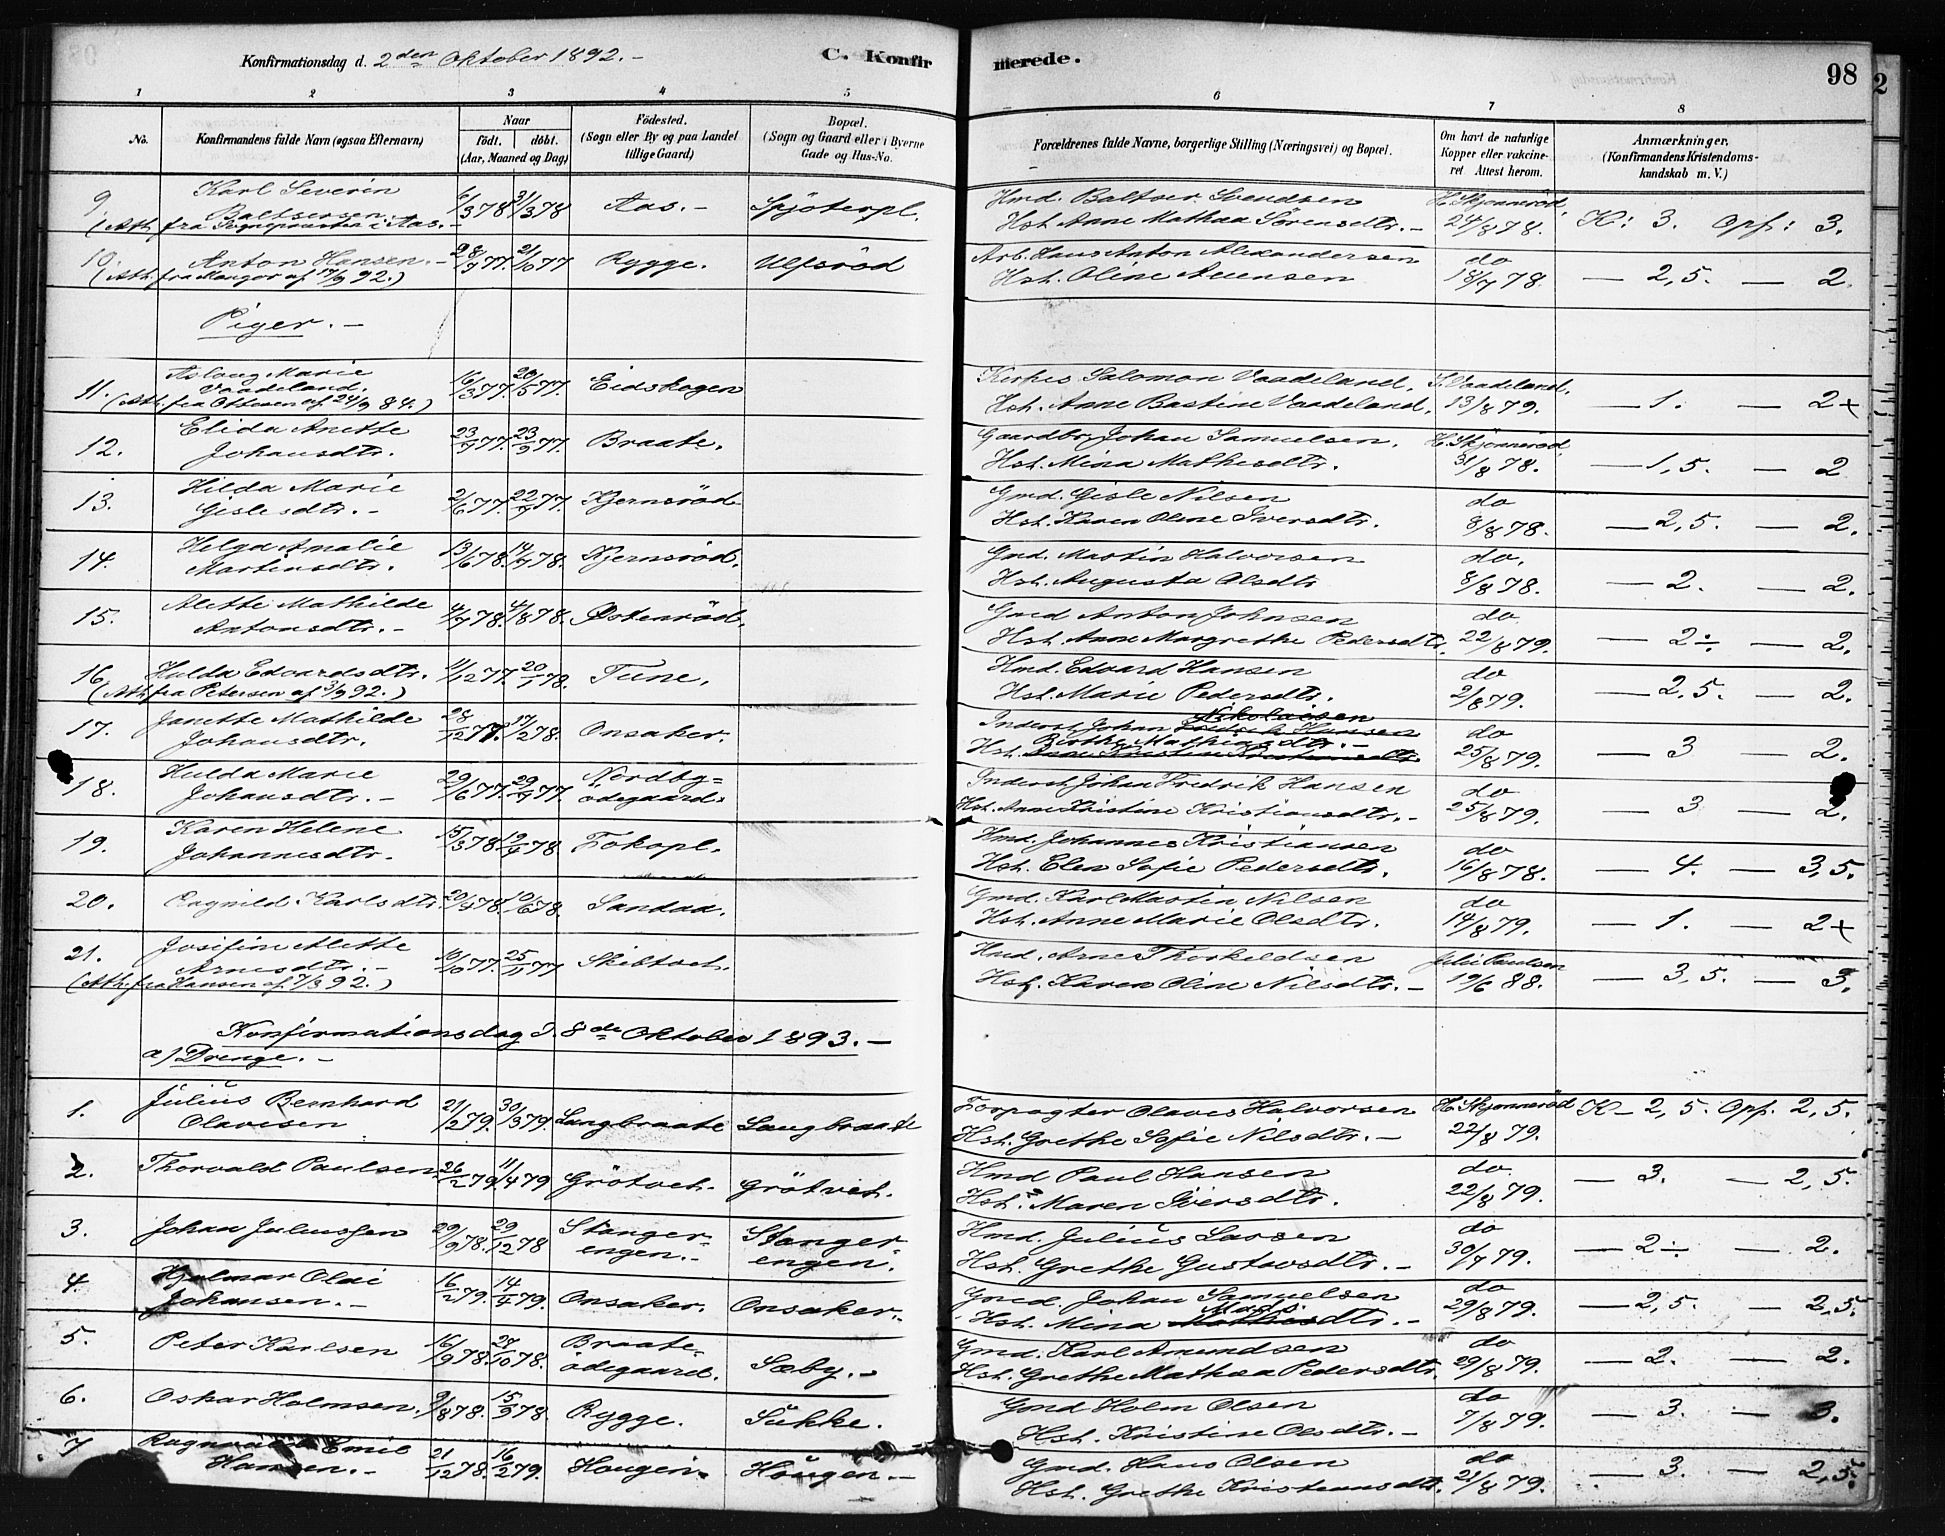 Konfirmationsdag d. 2den Oktober 1892. — C. Konfirmerede. 98
1 2 3 4 5 6 7 8
No. Konfirmandens fulde Navn (ogsaa Efternavn) Naar født. døbt. (Aar, Maaned og Dag) Fødested. (Sogn eller By og paa Landet tillige Gaard) Bopæl. (Sogn og Gaard eller i Byerne Gade og Hus-No. Forældrenes fulde Navne, borgerlige Stilling (Næringsvei) og Bopæl. Om havt de naturlige Kopper eller vakcineret. Attest herom. Anmærkninger. (Konfirmandens Kristendomskundskab m. V.)
9. Karl Severin 6/3 78 31/3 78 Aas. — Spjöterpl. Hmd. Baltser Svendsen H. Skjønneröd
Baltsersen. Hst. Anne Mathea Sörensdtr. — 24/8 78. K: 3. Opf: 3.
(Att. fra Sognepræsten i Aas. —
10. Anton Hansen. — 28/7 77 21/10 77 Rygge. Ulfsröd Arb. Hans Anton Alexandersen do
(Att. fra Maugor af 17/9 92.) Hst. Oline 18/7 78. — 2,5. — 2.
Piger. —
11. Aslaug Marie 16/3 77. 20/5 77. Eidskogen Salomon Vaadeland. S. Vaadeland.
Vaadeland. Hst. Anne Bastine Vaadeland. 13/8 79. — 1. — 2+
(Att. fra Ottesen af 24/9 84.)
12. Elida Anette 23/7 77. 23/9 77. Braate. Gaardbr. Johan Samuelsen. H. Skjønneröd
Johansdtr. Hst. Mina Mathisdtr. 31/8 78. — 1,5. — 2
13. Hilda Marie 2/6 77. 22/7 77. Kjernsröd Gmd. Gisle Nilsen do
Gislesdtr. — Hst. Karen Oline Iversdtr. 8/8 78. — 2,5. — 2.
14. Helga Amalie 13/6 78. 14/7 78. Kjernsröd. Gmd. Martin Halvorsen do.
Martinsdtr. Hst. Augusta Olsdtr 8/8 78. — 2. — 2.
15. Alette Mathilde 4/7 78. 4/8 78. Østenröd. Gmd Anton Johnsen do
Antonsdtr. — Hst. Anne Margrethe Pedersdtr. 22/8 79. — 2÷ — 2.
16. Hulda Edvardsdtr. 11/12 77. 20/1 78. Tune. Hmd. Edvard Hansen do
(Att. fra Petersen af 3/9 92.) Hst. Marie Pedersdtr. 2/8 79. — 2,5. — 2.
17. Janette Mathilde 28/12 77. 17/2 78. Onsaker. Inderst. Johan Nikolaisen do
Johansdtr. Hst. Birthe Mathiasdtr. — 25/8 79. — 3 — 2.
18. Hulda Marie 29/6 77. 29/7 77. Nordby= Inderst Johan Fredrik Hansen do
Johansdtr. — ödegaard. Hst. Anne Kristine Kristiansdtr. — 25/8 79. — 3 — 2.
19. Karen Helene 15/3 78. 19/4 78 Fokopl. Hmd. Johannes Kristiansen do
Johannesdtr. Hst. Elen Sofie Pedersdtr. 16/8 78. — 4. — 3,5.
20. Ragnild Karlsdtr. 20/4 78. 10/6 78. Sandaa. Gmd. Karl Martin Nilsen do
Hst. Anne Marie Olsdtr. 14/8 79. — 1. — 2+
21. Josefine Alette 10/10 77. 25/11 77 Skibtvet. Hmd. Arne Thorkeldsen Julie Paulsen
Arnesdtr. — Hst. Karen Oline Nilsdtr. — 19/6 88. — 3,5. — 3.
(Att. fra Hansen af 7/3 92.)
Konfirmationsdag d. 8de Oktober 1893. —
a) Drenge. —
1. Julius Bernhard 21/2 79. 30/3 79. Langbraate Langbraate Forpagter Olaves Halvorsen H. Skjønneröd K — 2,5. Opf. 2,5.
Olavesen Hst. Grethe Sofie Nilsdtr. — 22/8 79.
2. Thorvald Paulsen 26/2 79. 11/4 79 Grötvet. Grötvet. Hmd Paul Hansen do
Hst. Maren Iversdtr. 22/8 79. — 3. — 2,5.
3. Johan Juliussen 29/9 78. 29/12 78 Stanger- Stanger- Hmd. Julius Larsen do
engen. — engen. Hst. Grethe Gustavsdtr. — 30/7 79. — 2÷ — 2.
4. Hjalmar Olai 16/2 79. 14/4 79. Onsaker. Onsaker. Gmd. Johan Samuelsen do
Johansen. — Hst. Mina Mads dtr. — 29/8 79. — 2,5. — 2,5.
5. Peter Karlsen 16/9 78. 27/10 78. Braate- Sæby. — Gmd. Karl Amundsen do
ödegaard. Hst. Grethe Mathea Pedersdtr. 29/8 79. — 2. — 2.
6. Oskar Holmsen. 9/8 78. 15/9 78. Rygge. Sukke. Gmd Holm Olsen do
Hst. Kristine Olsdtr. — 7/8 79. — 3. — 3.
7 Ragnvald Emil 21/12 78. 16/2 79. Hougen. Hougen. — Gmd. Hans Olsen do
Hansen. — Hst. Grethe Kristiansdtr. 21/8 79. — 3. — 2,5.